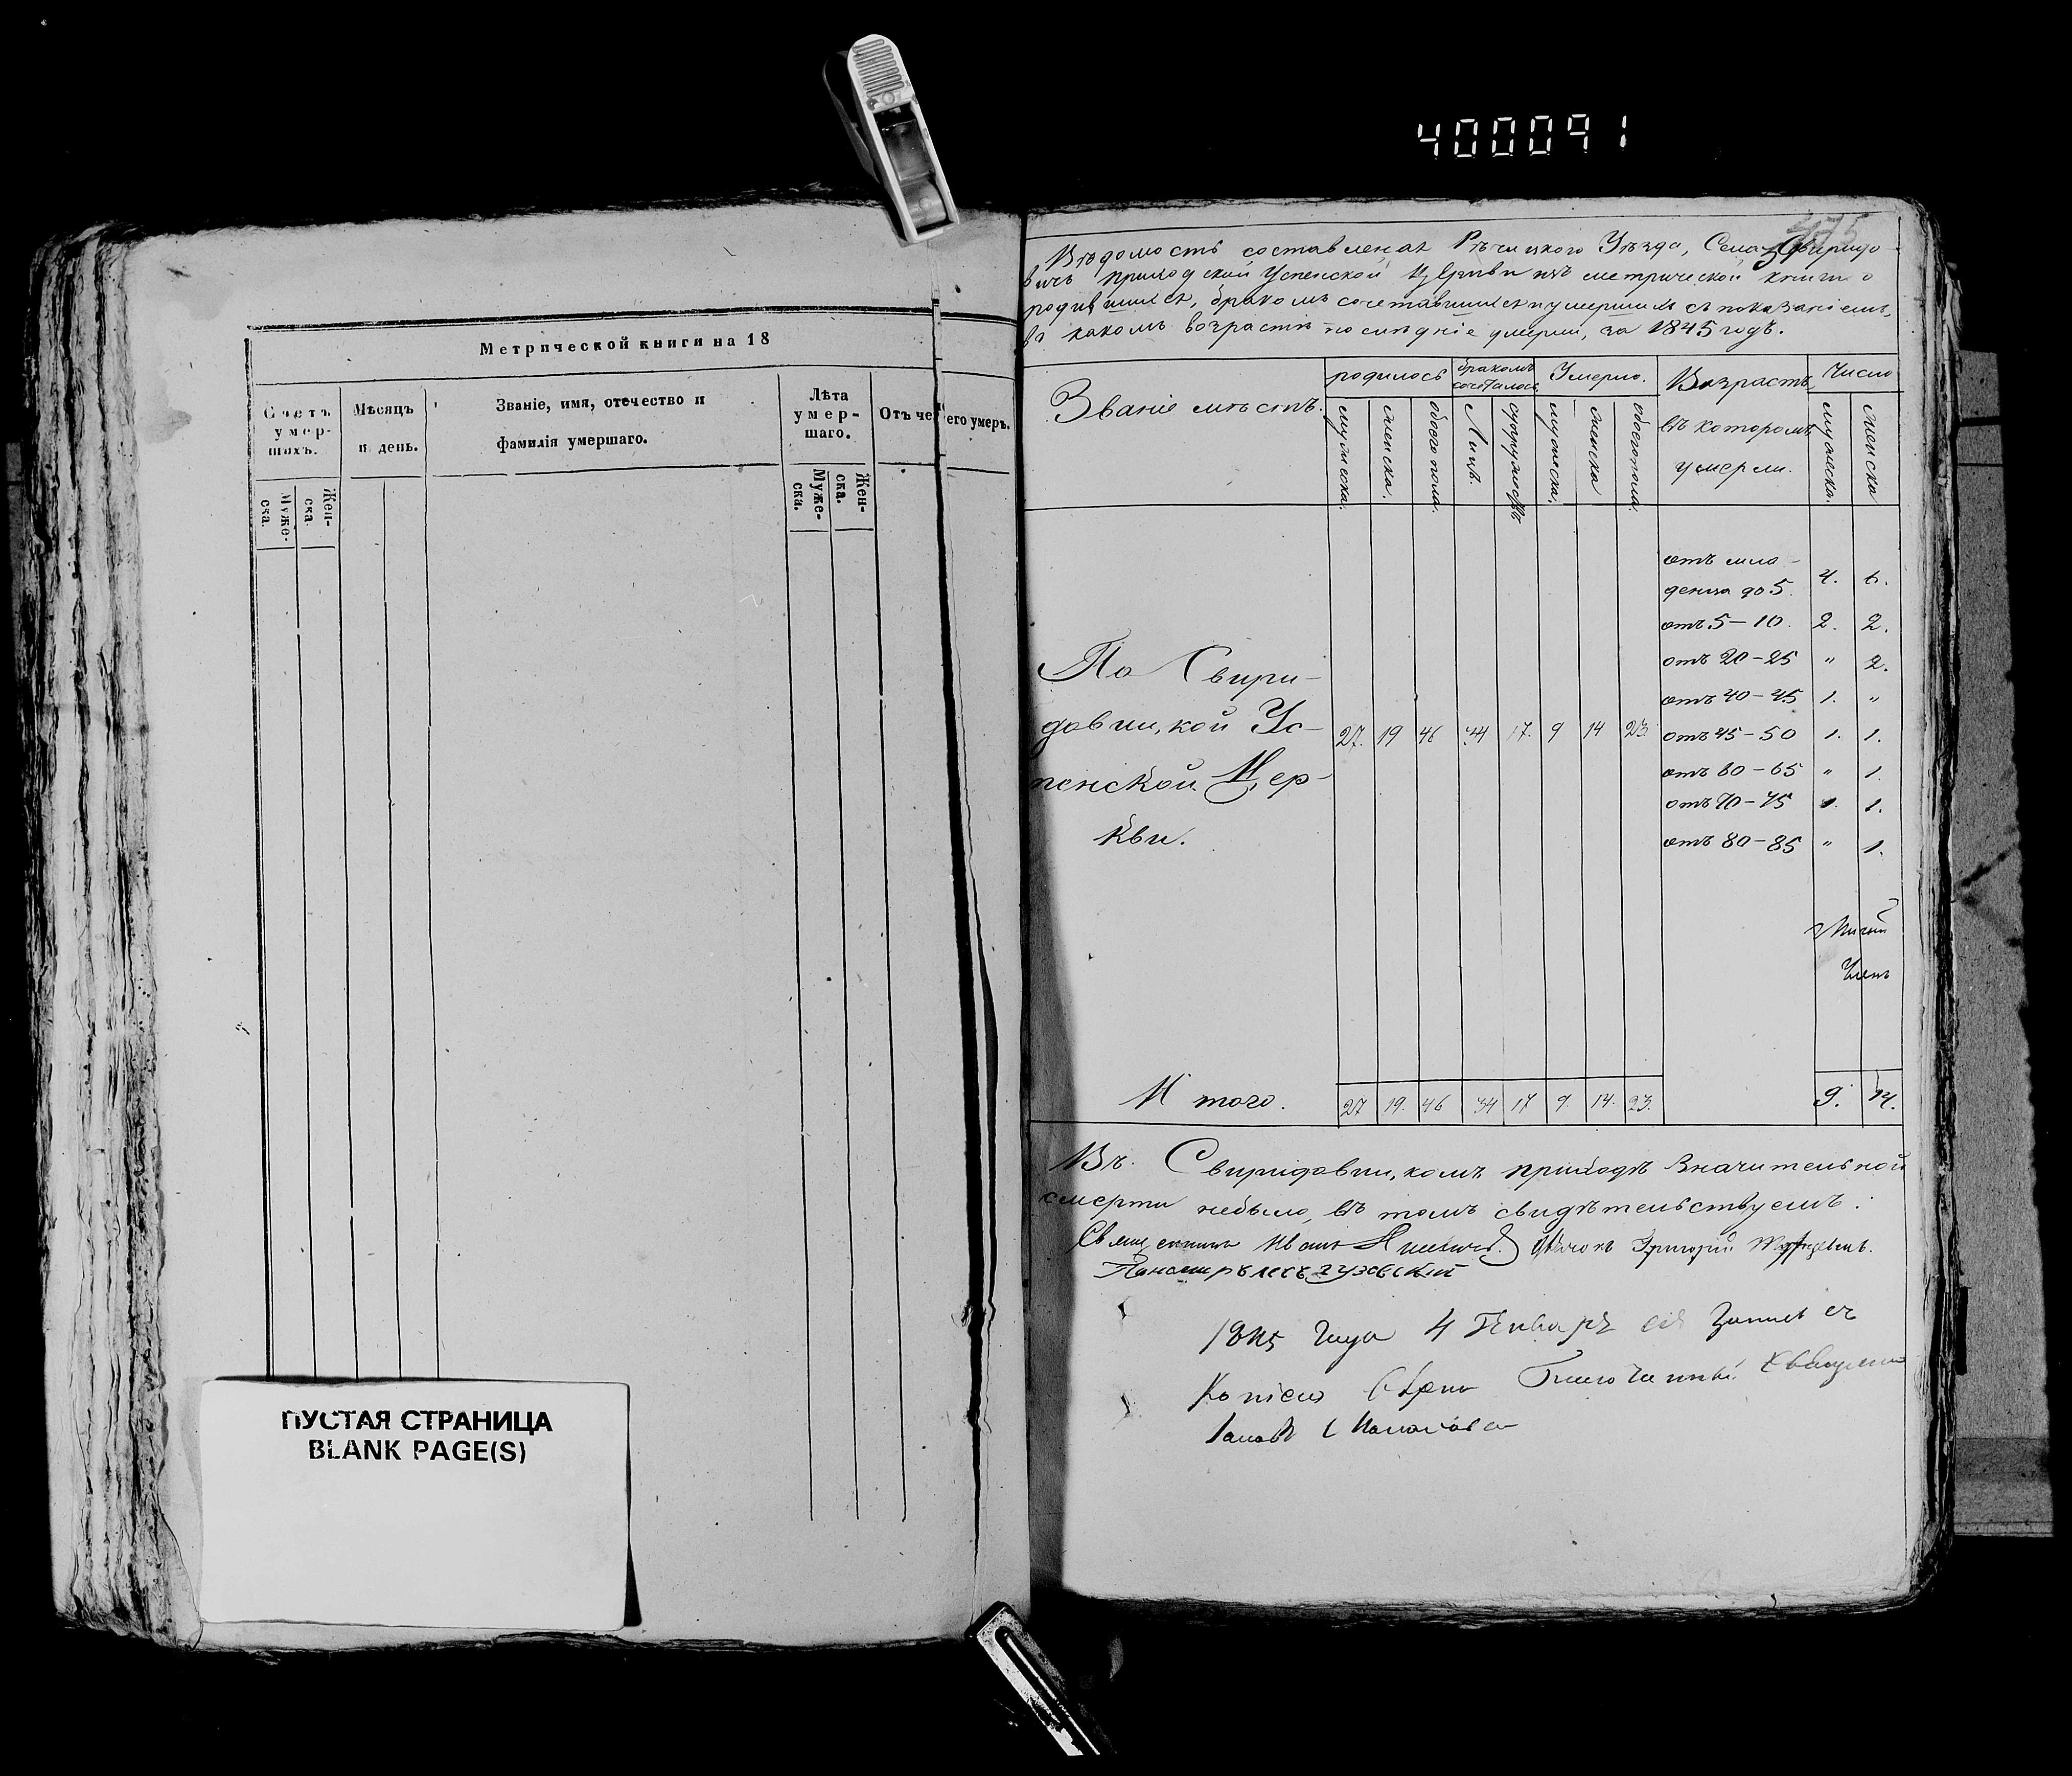 400091
Метрической книги на 18
Счетъ умер-шихъ.
Мѣсяцъ и день.
Званіе, имя, отечество и фамилія умершаго.
Лѣта умер-шаго.
Отъ чего умеръ.
Муже-ска.
Жен-ска.
Муже-ска.
Жен-ска.
ПУСТАЯ СТРАНИЦА
BLANK PAGE(S)
Вѣдомость составленая Рѣчицкого Уѣзда, Села Свиридо-
вичь приходской Успенской Церкви изъ метрической книги о
родившихся, бракомъ сочетавшихся и умершихъ съ показаніемъ,
въ какомъ возрастѣ послѣдніе умерли, за 1845 годъ.
Званіе мѣстъ.
родилось
бракомъ сочеталось
Умерло.
Возрастъ, въ которомъ умерли.
Число
мужеска.
женска.
обоего пола.
Лицъ.
супружествъ
мужеска.
женска
обоего пола.
мужеска.
женска
отъ мла-
денца до 5. 4. 6.
отъ 5-10. 2. 2.
отъ 20-25 " 2.
отъ 40-45 1. "
По Свири-
довицкой Ус-
пенской Цер-
кви.
27. 19 46 34 17. 9 14 23.
отъ 45-50 1. 1.
отъ 60-65 " 1.
отъ 70-75 1. 1.
отъ 80-85 " 1.
Итого. 27 19. 46 34 17 9. 14. 23. 9. 14.
Въ Свиридовицкомъ приходѣ значительной
смерти небыло, въ томъ свидѣтельствуемъ:
Священникъ Иванъ Дьячокъ Григорій
1845 Года 4 Января сія Запись съ
Копіею Благочинный